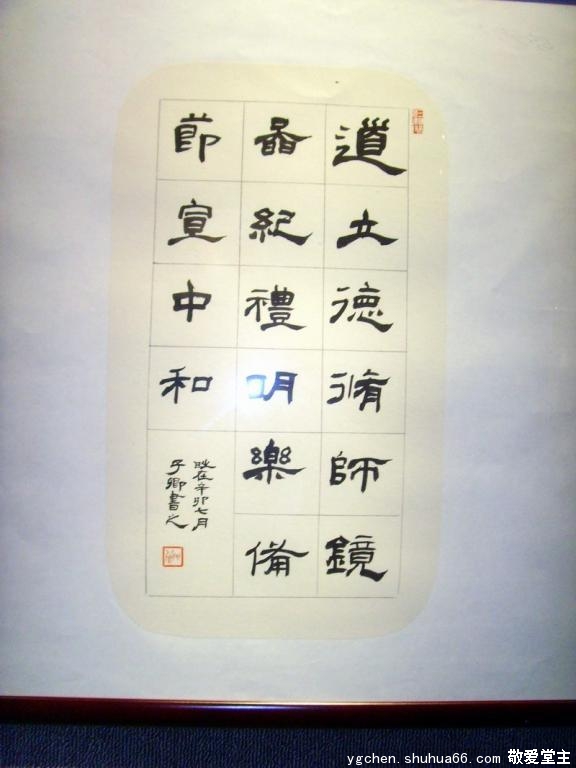 道立德脩師鏡
紀禮明樂備
節宣中和
時在辛卯七月
子卿書之
ygchen.shuhua66.com 敬爱堂主